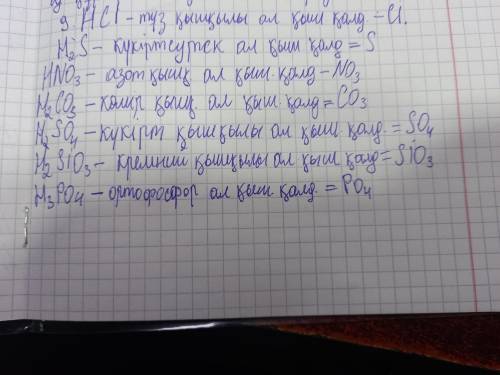 9. HCl - тұз қышқылы ал қыш қалд - Cl.
H₂S - күкіртсутек ал қыш қалд = S
HNO₃ - азот қышқ ал қыш. қалд - NO₃
H₂CO₃ - көмір қышқ. ал қыш. қалд = CO₃
H₂SO₄ - күкірт қышқылы ал қыш. қалд. = SO₄
H₂SiO₃ - кремний қышқылы ал қыш қалд = SiO₃
H₃PO₄ - ортофосфор ал қыш. қалд = PO₄